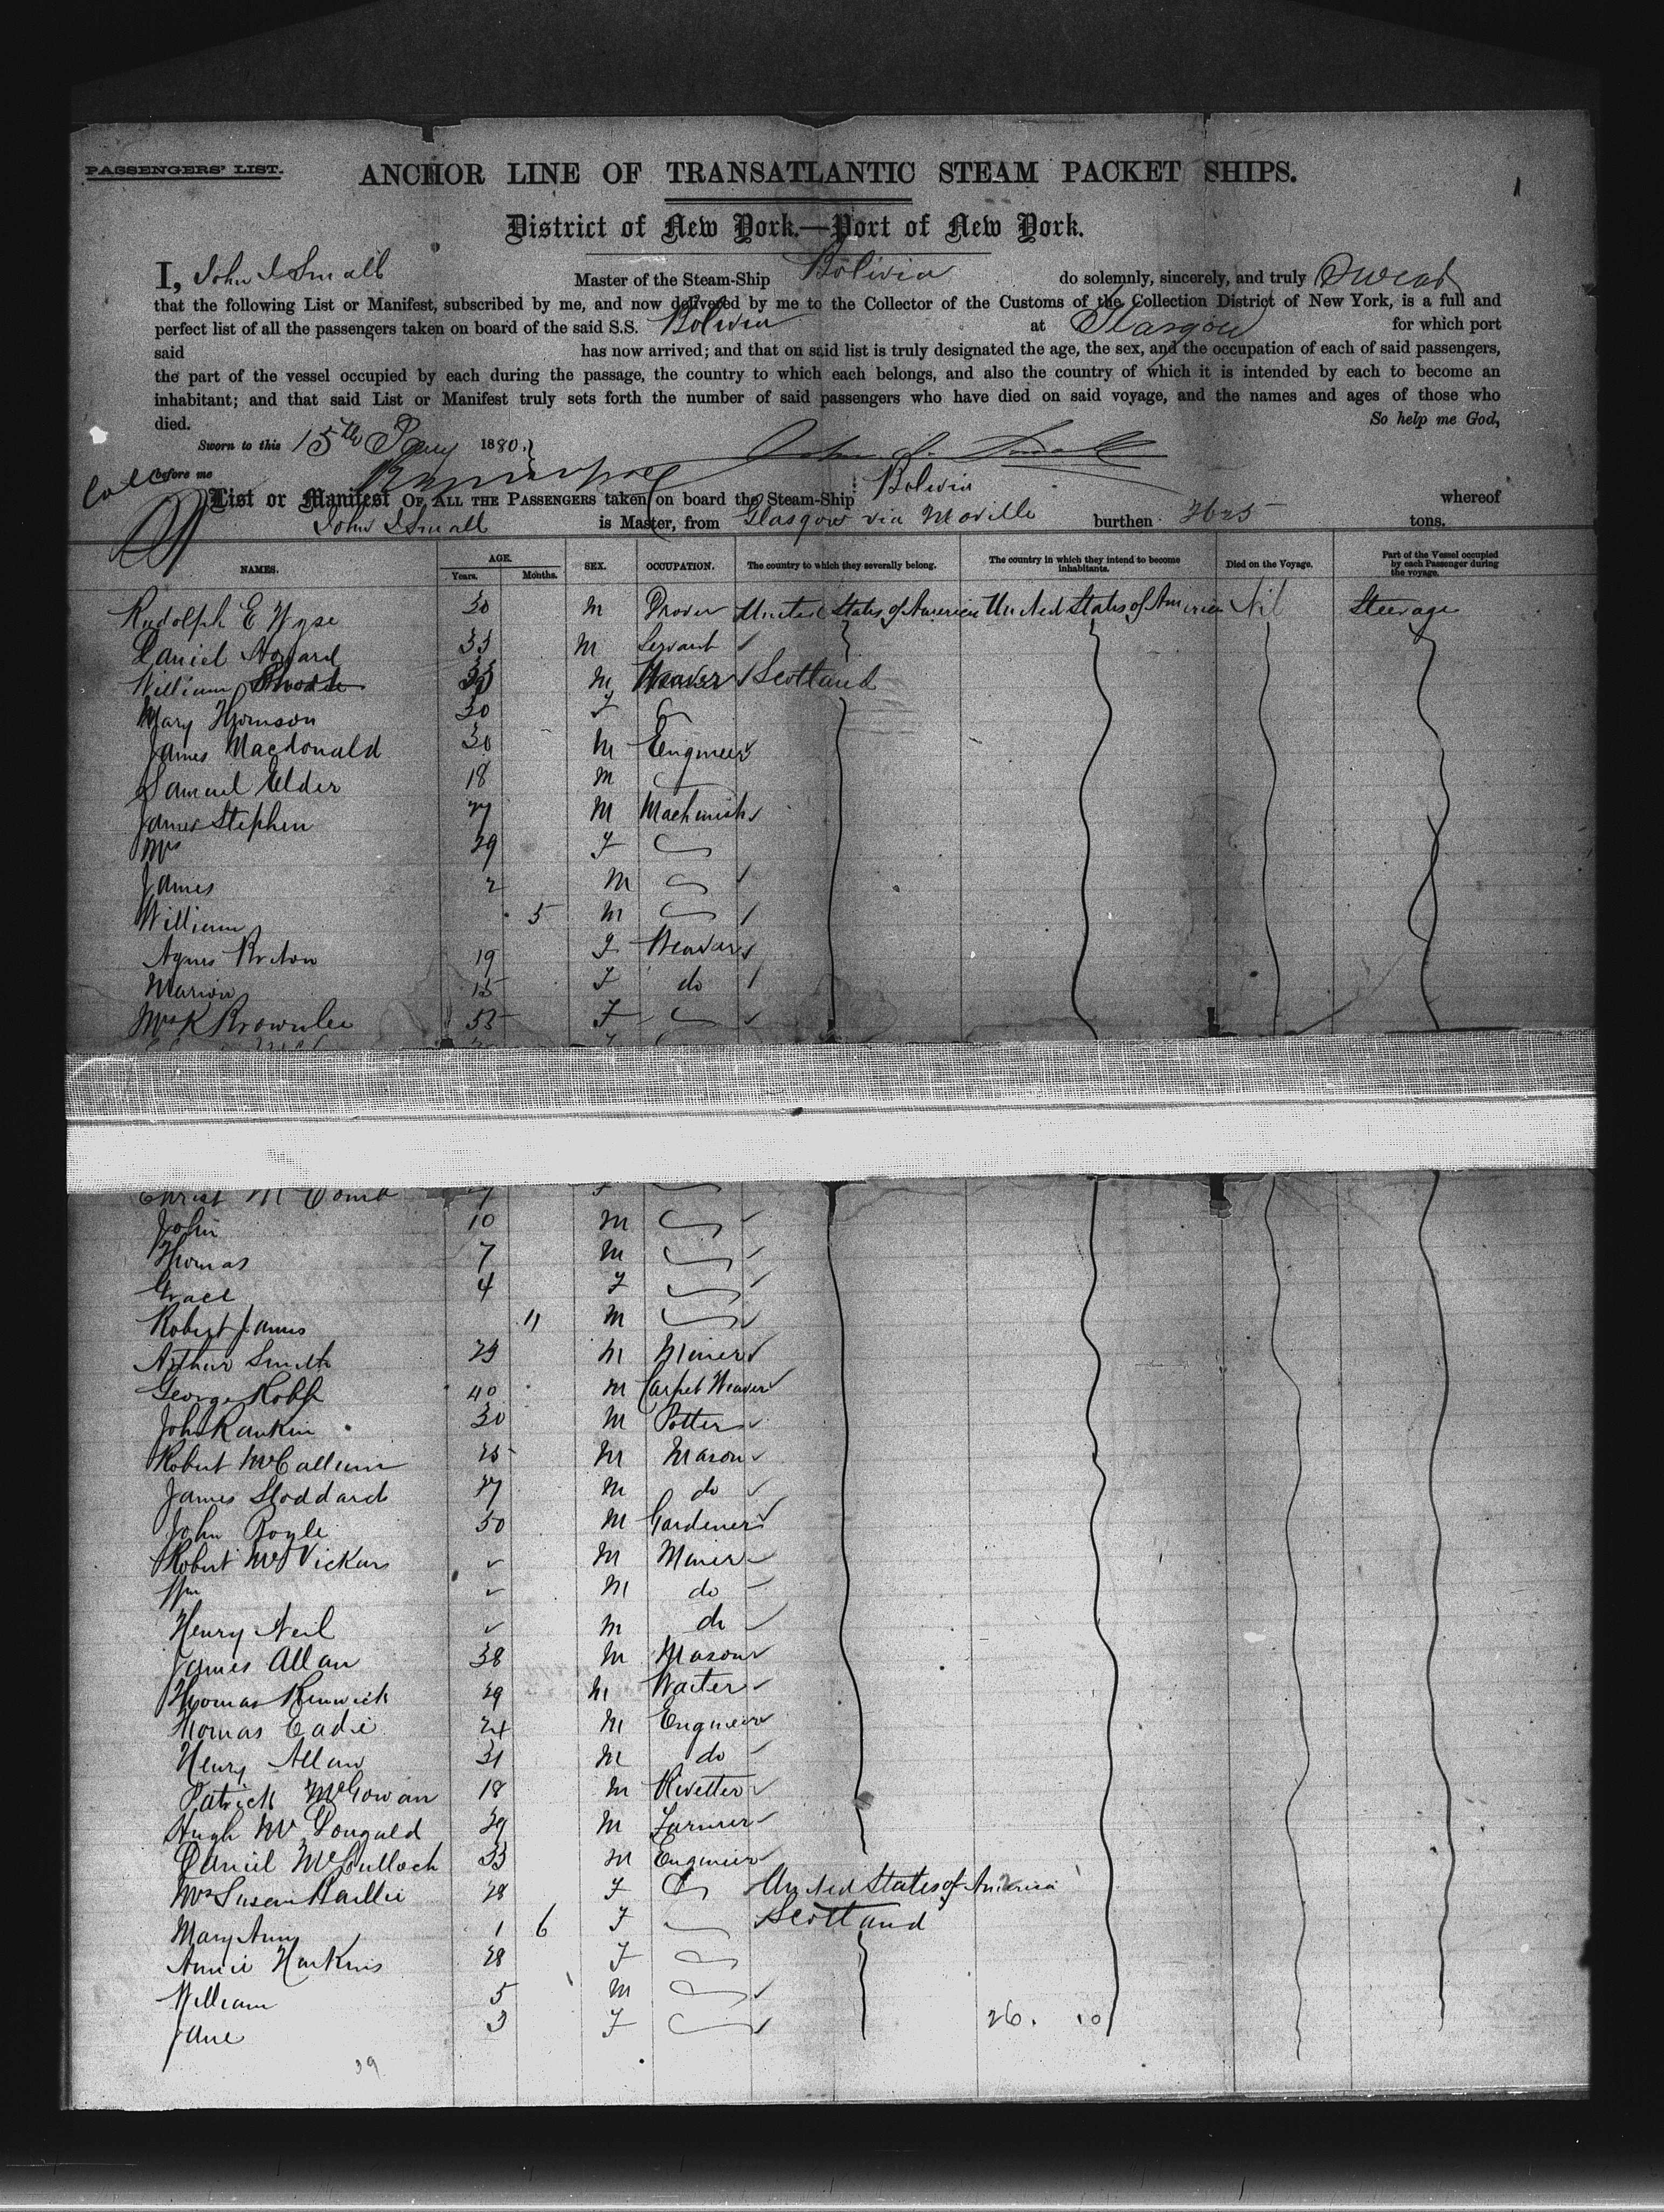 PASSENGERS' LIST.
ANCHOR LINE OF TRANSATLANTIC STEAM PACKET SHIPS.
1
District of New York.—Port of New York.
I, John J Small Master of the Steam-Ship Bolivia do solemnly, sincerely, and truly Swear
that the following List or Manifest, subscribed by me, and now delivered by me to the Collector of the Customs of the Collection District of New York, is a full and
perfect list of all the passengers taken on board of the said S.S. Bolivia at Glasgow for which port
said has now arrived; and that on said list is truly designated the age, the sex, and the occupation of each of said passengers,
the part of the vessel occupied by each during the passage, the country to which each belongs, and also the country of which it is intended by each to become an
inhabitant; and that said List or Manifest truly sets forth the number of said passengers who have died on said voyage, and the names and ages of those who
died. So help me God,
Sworn to this 15th Jany 1880. John J. Small
before me
List or Manifest OF ALL THE PASSENGERS taken on board the Steam-Ship Bolivia whereof
John J Small is Master, from Glasgow via Moville burthen 2625 tons.
NAMES. AGE. Years. Months. SEX. OCCUPATION. The country to which they severally belong. The country in which they intend to become inhabitants. Died on the Voyage. Part of the Vessel occupied by each Passenger during the voyage.
Rudolph E Wyse 30 M Drover United States of America United States of America Nil Steerage
Daniel Howard 33 M Servant
William 35 M Weaver Scotland
Mary Thomson 30 F
James Macdonald 30 M Engineer
Samuel Elder 18 M
James Stephen 27 M Machinist
Mrs 29 F
James 2 M
William 5 M
Agnes 19 F Weaver
Marion 15 F do
Mrs K Brownlee 55 F
Christ McComb F
John 10 M
Thomas 7 M
Grace 4 F
Robert James 11 M
Arthur Smith 23 M Miner
George Robb 40 M Carpet Weaver
John Rankin 30 M Potter
Robert McCallum 25 M Mason
James Stoddard 27 M do
John Boyle 50 M Gardener
Robert McVickar ✓ M Miner
Wm ✓ M do
Henry Neil ✓ M do
James Allan 38 M Mason
Thomas Renwick 29 M Waiter
Thomas Eadie 24 M Engineer
Henry Allan 31 M do
Patrick McGowan 18 M Rivetter
Hugh McDougald 29 M Farmer
Daniel McCulloch 33 M Engineer
Mrs Susan Baillie 28 F United States of America
Mary Ann 1 6 F Scotland
Annie Harkins 28 F
William 5 M
Jane 3 F 26. 10
39